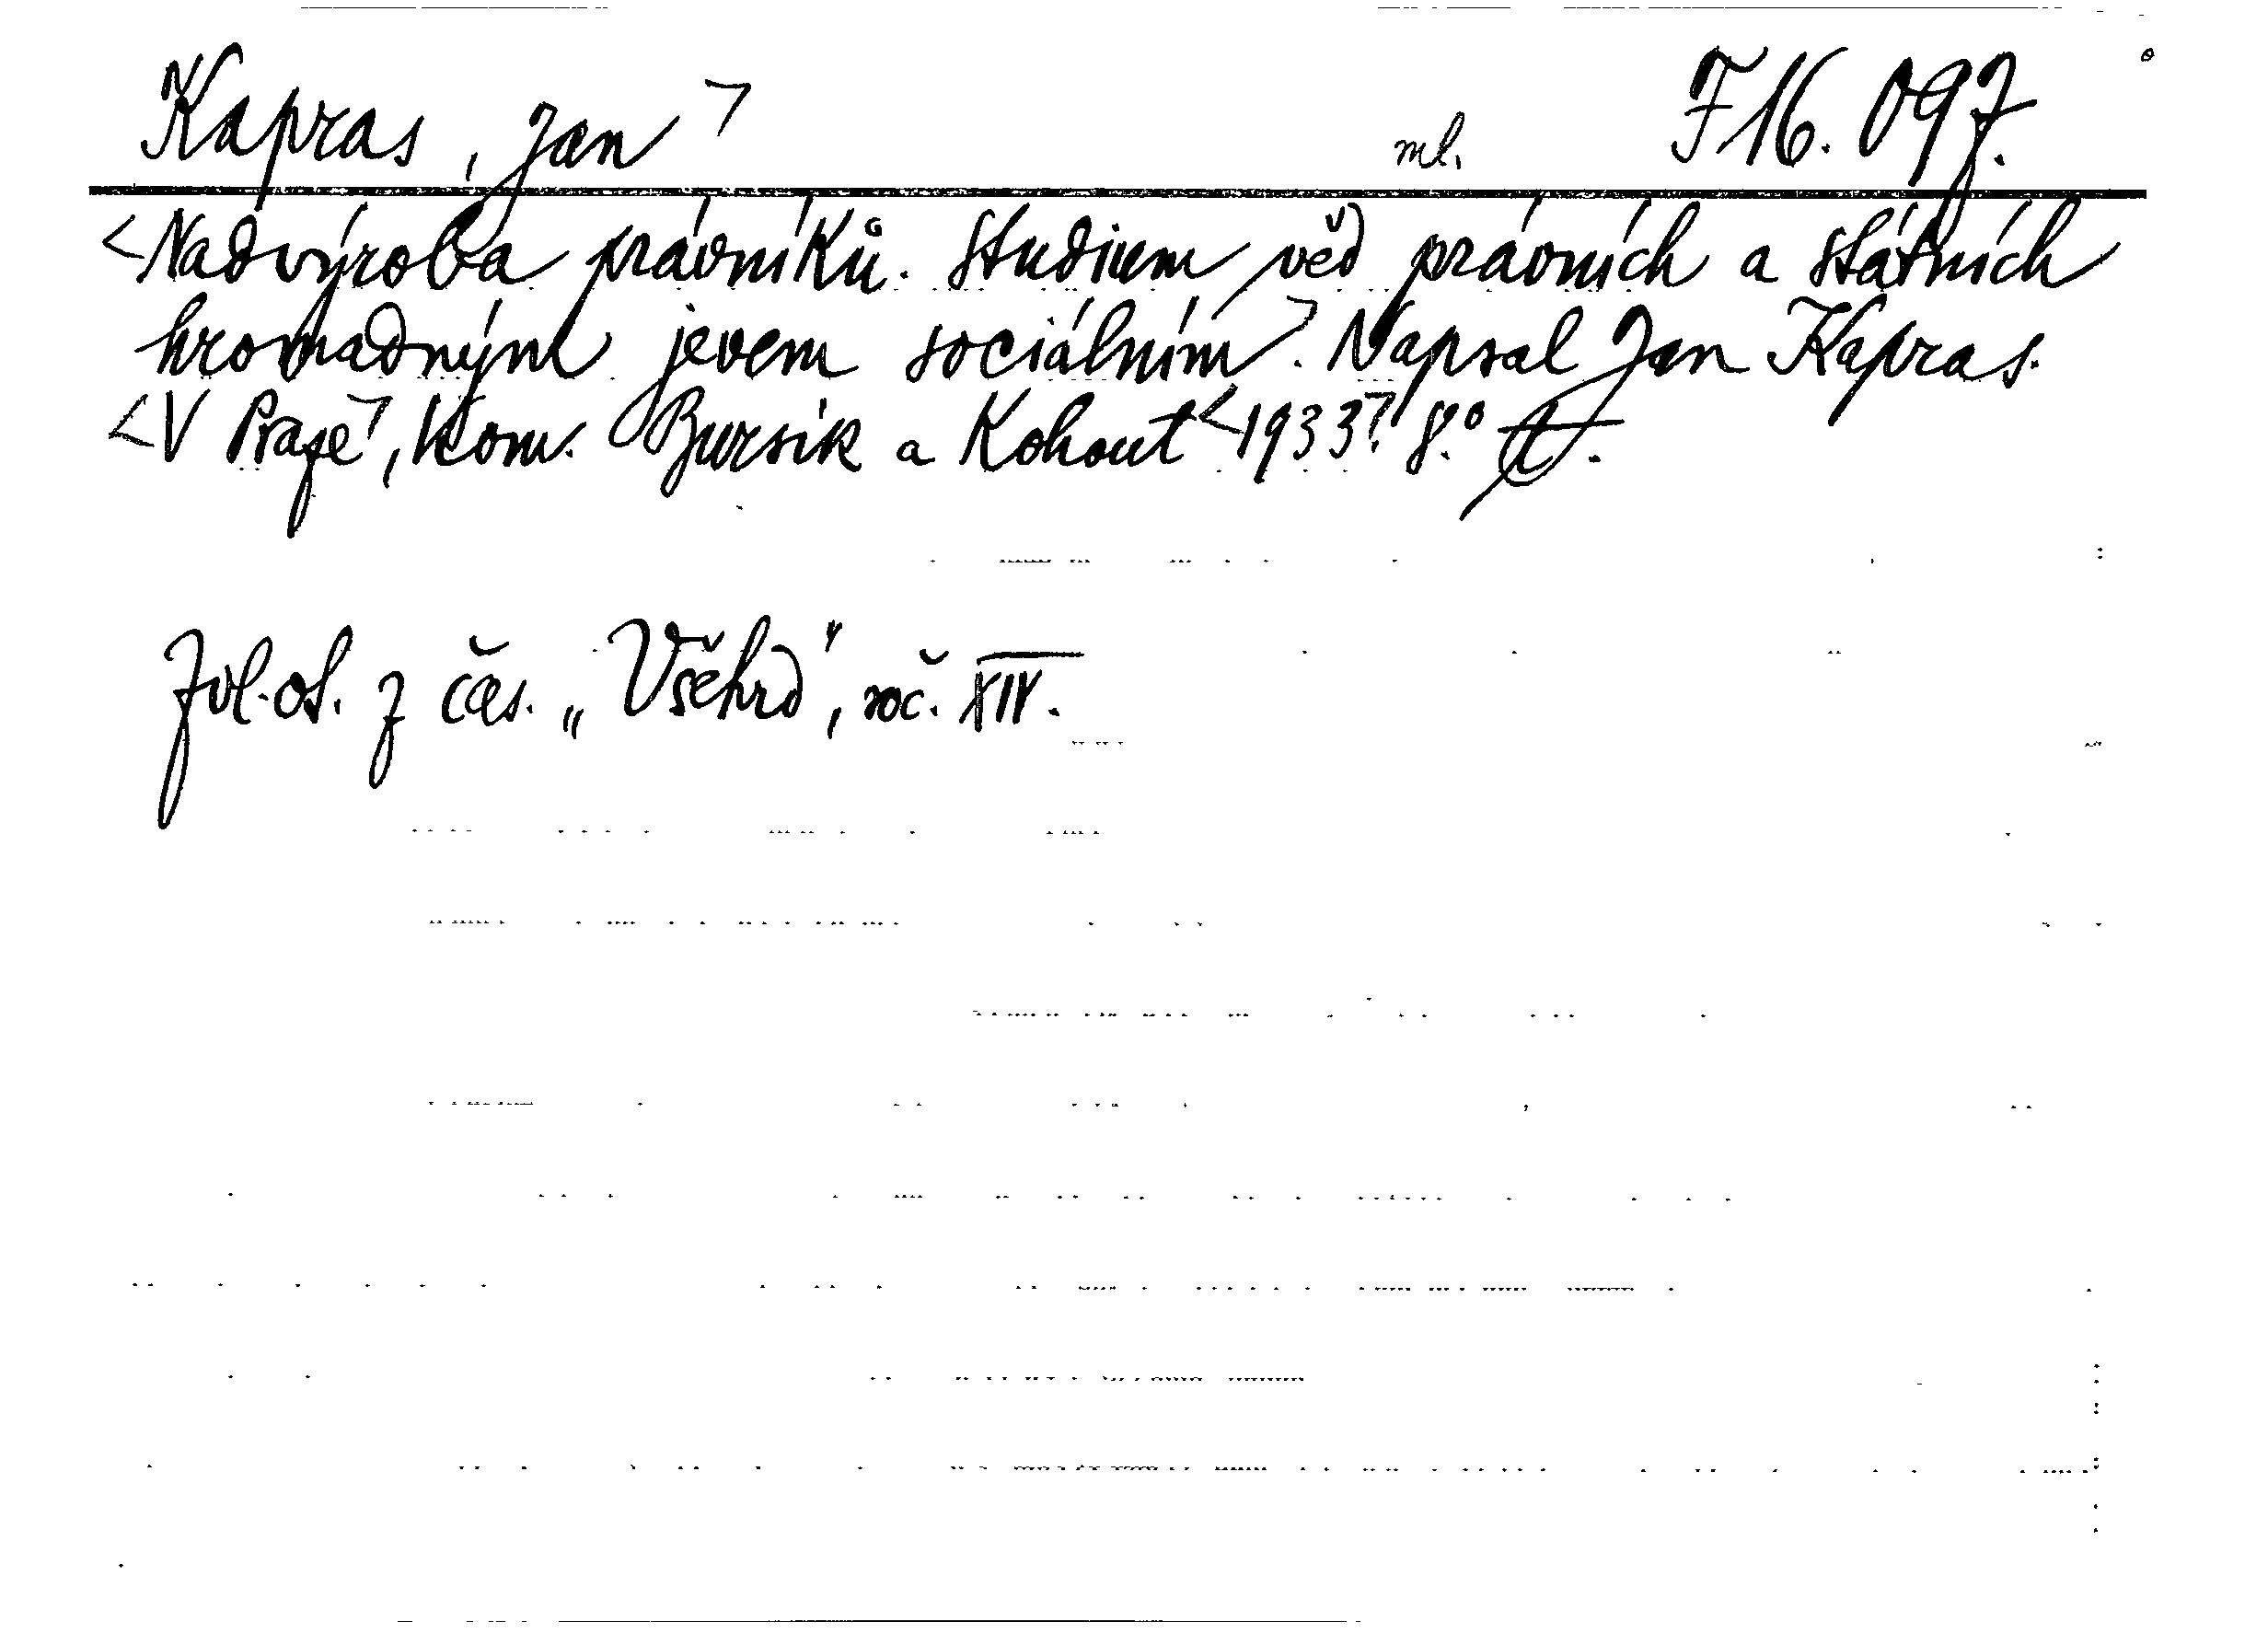 Kapras, Jan ml. F 16.097.
<Nadvýroba právníků. Studium věd právních a státních
hromadným jevem sociálním. Napsal Jan Kapras.
<V Praze, Kom. Bursík a Kohout <1933>. 8.°
Zvl. ot. z čas. „Všehrd", roč. XIV.